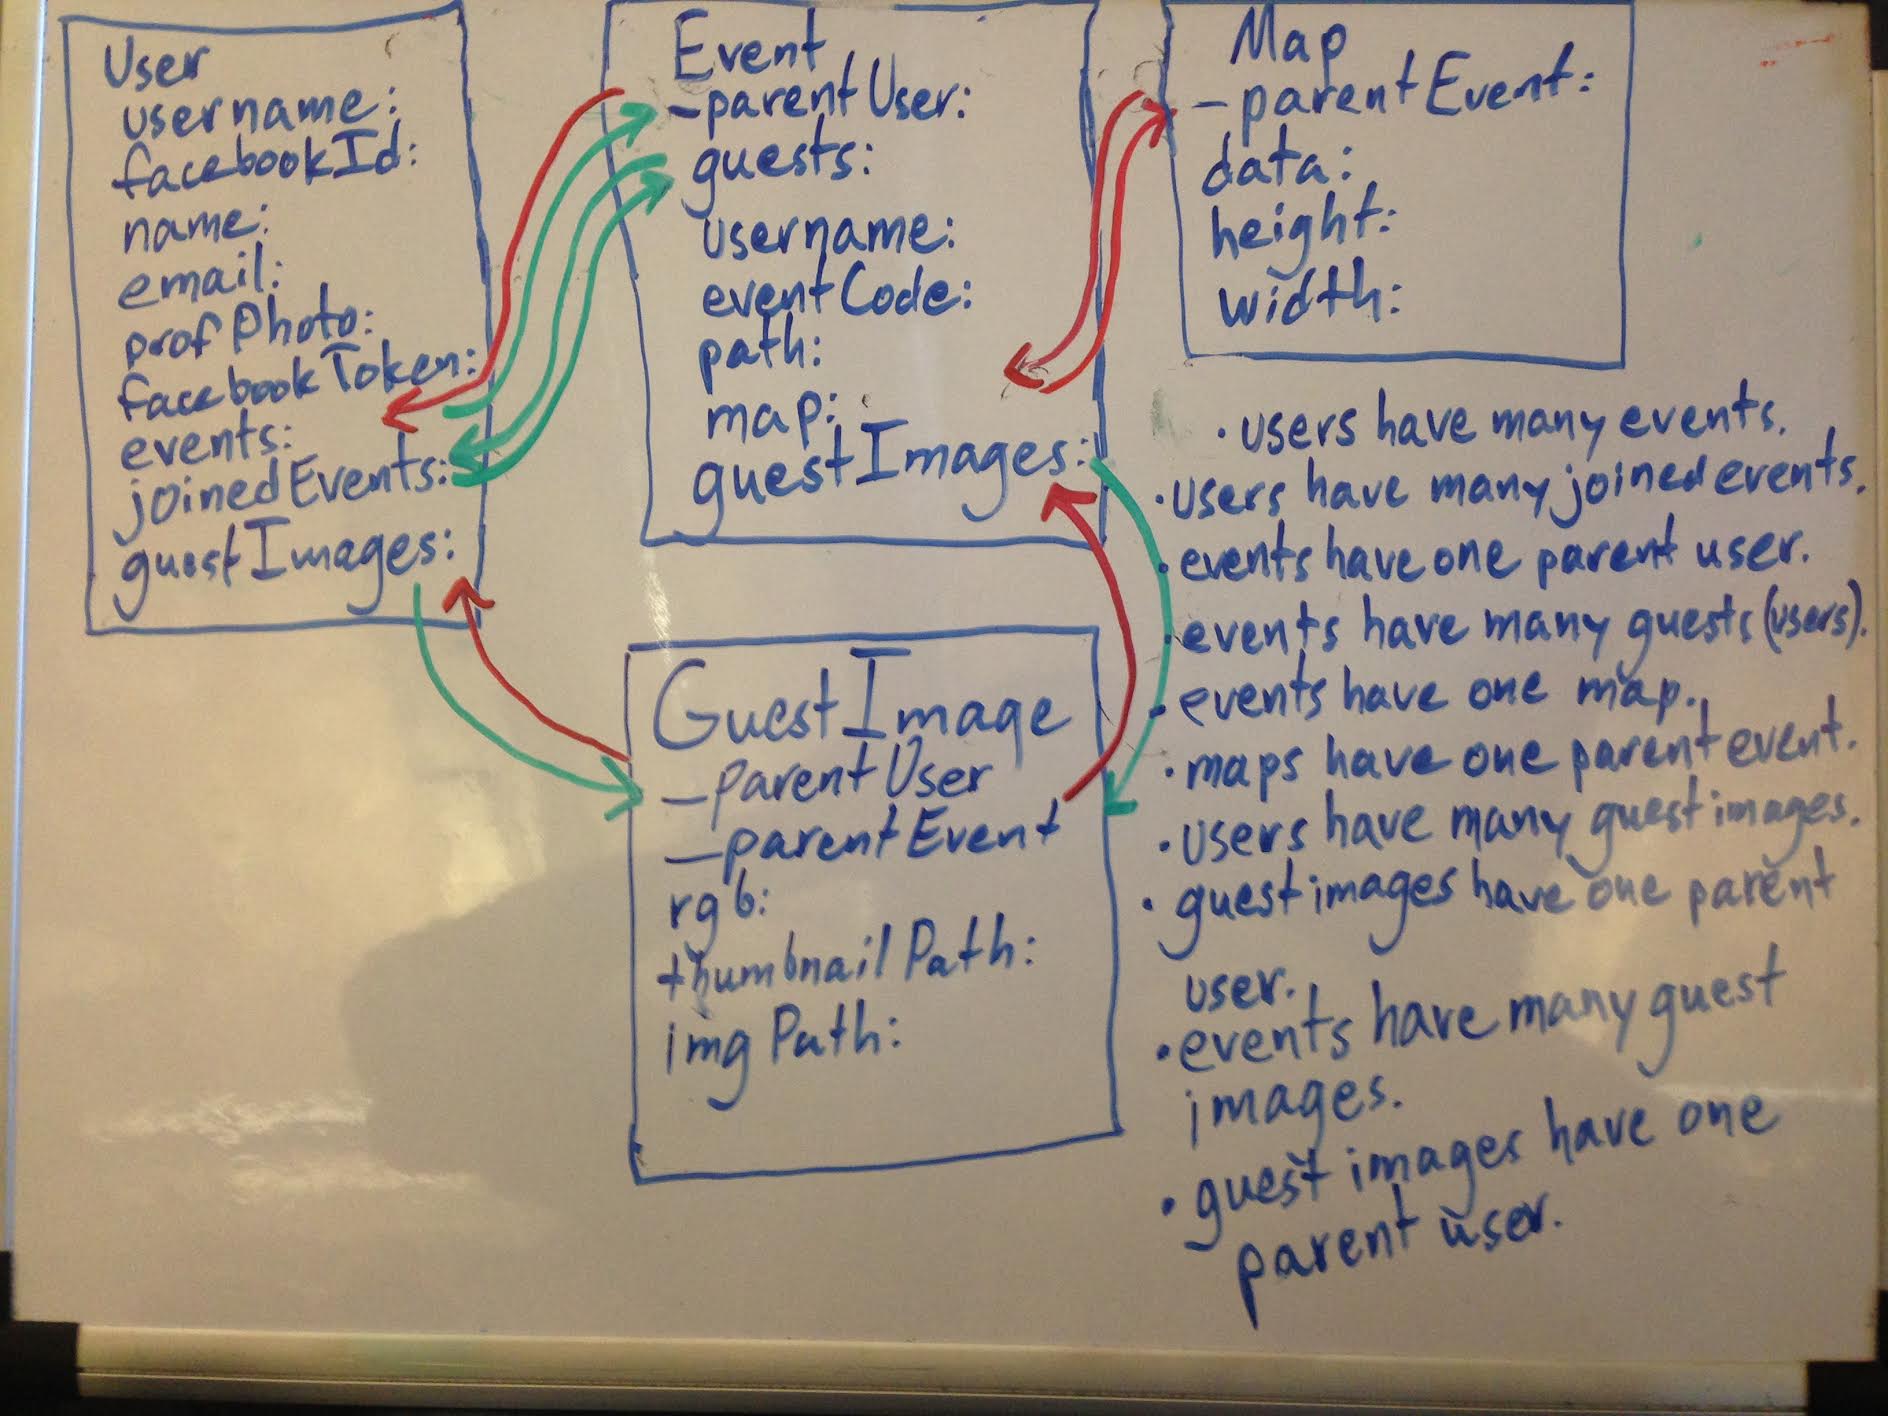 User
username:
facebookId:
name:
email:
profPhoto:
facebookToken:
events:
joinedEvents:
guestImages:
Event
_parentUser:
guests:
username:
eventCode:
path:
map:
guestImages:
Map
_parentEvent:
data:
height:
width:
GuestImage
_parentUser
_parentEvent
rgb:
thumbnailPath:
imgPath:
• users have many events.
• users have many joined events.
• events have one parent user.
• events have many guests (users).
• events have one map.
• maps have one parent event.
• users have many guest images.
• guest images have one parent
user.
• events have many guest
images.
• guest images have one
parent user.